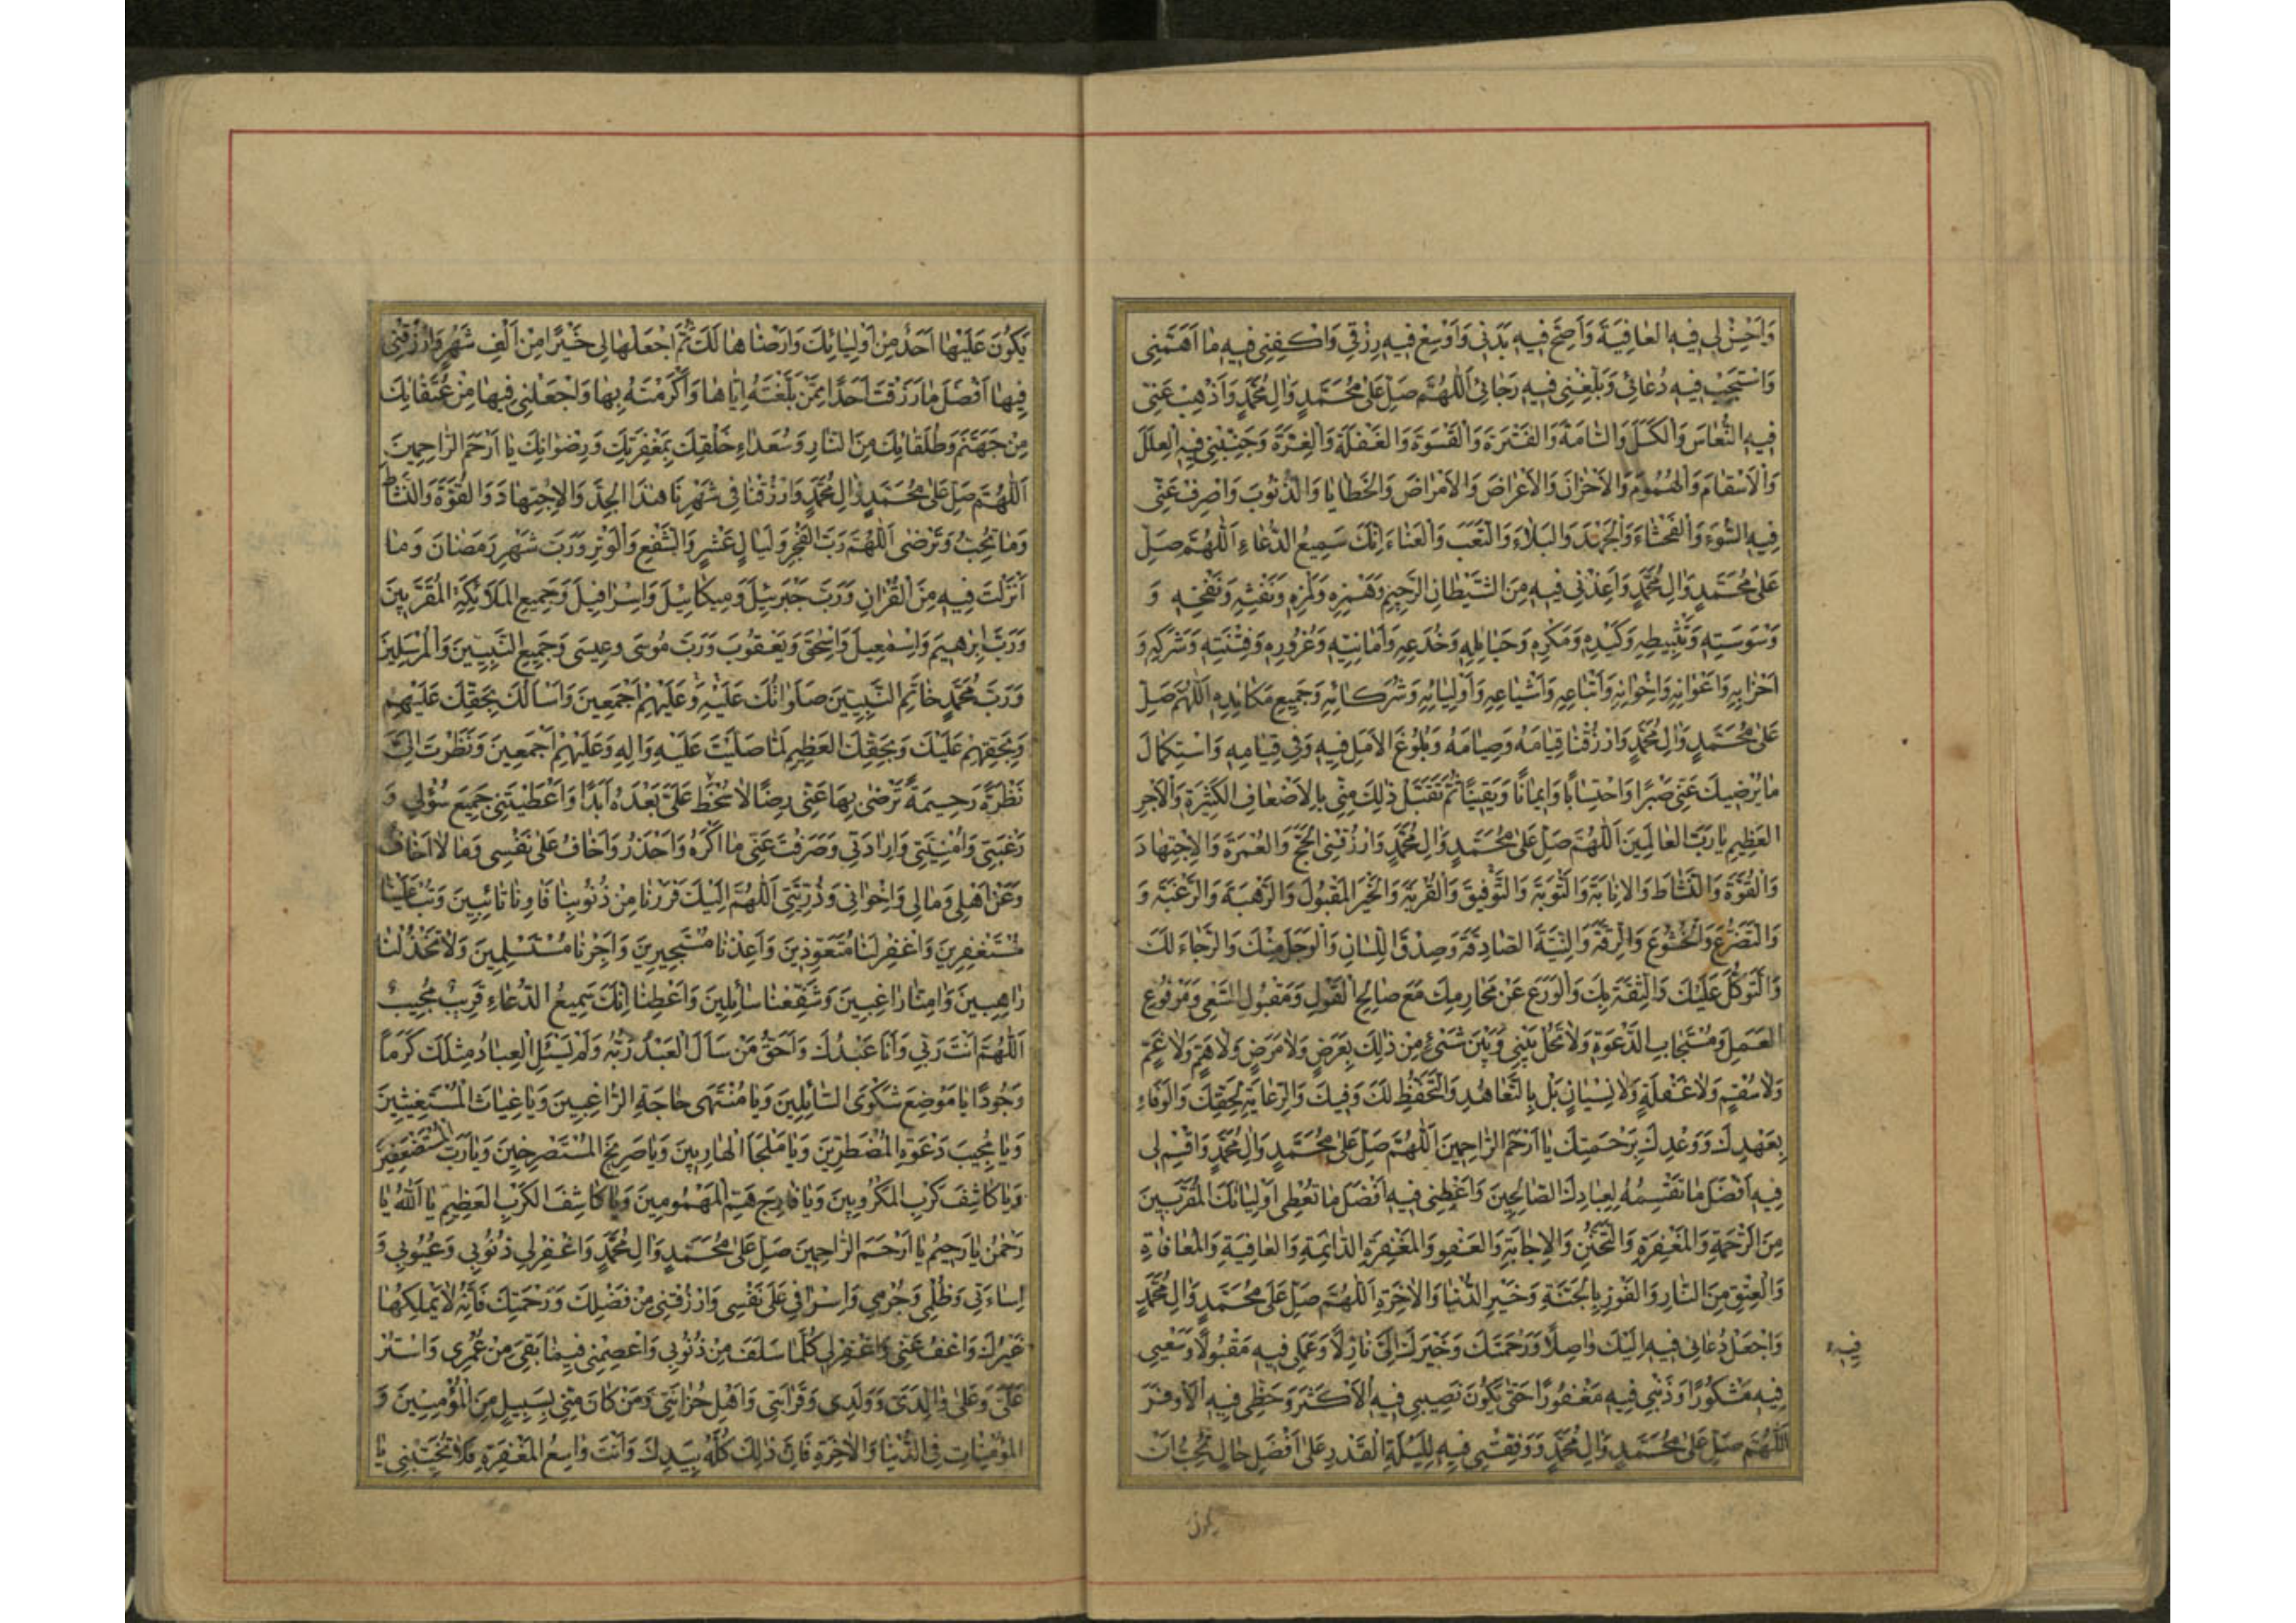 وَاَحْسِنْ لِي فِيهِ العَافِيَةَ وَاَصِحَّ فِيهِ بَدَنِي وَاَوْسِعْ فِيهِ رِزْقِي وَاكْفِنِي فِيهِ مَا اَهَمَّنِي
وَاسْتَجِبْ فِيهِ دُعَائِي وَبَلِّغْنِي فِيهِ رَجَائِي اَللّٰهُمَّ صَلِّ عَلٰى مُحَمَّدٍ وَاٰلِ مُحَمَّدٍ وَاَذْهِبْ عَنِّي
فِيهِ النُّعَاسَ وَالْكَسَلَ وَالسَّامَةَ وَالفَتْرَةَ وَالقَسْوَةَ وَالغَفْلَةَ وَالْغِرَّةَ وَجَنِّبْنِي فِيهِ الْعِلَلَ
وَالْاَسْقَامَ وَالْهُمُومَ وَالاَحْزَانَ وَالاَعْرَاضَ وَالاَمْرَاضَ وَالخَطَايَا وَالذُّنُوبَ وَاصْرِفْ عَنِّي
فِيهِ السُّوءَ وَالفَحْشَاءَ وَالْجَهْدَ وَالبَلَاءَ وَالتَّعَبَ وَالْعَنَاءَ اِنَّكَ سَمِيعُ الدُّعَاءِ اَللّٰهُمَّ صَلِّ
عَلٰى مُحَمَّدٍ وَاٰلِ مُحَمَّدٍ وَاَعِذْنِي فِيهِ مِنَ الشَّيْطَانِ الرَّجِيمِ وَهَمْزِهِ وَلَمْزِهِ وَنَفْثِهِ وَنَفْخِهِ وَ
وَسْوَسَتِهِ وَتَثْبِيطِهِ وَكَيْدِهِ وَمَكْرِهِ وَحَبَايِلِهِ وَخُدَعِهِ وَاَمَانِيِّهِ وَغُرُورِهِ وَفِتْنَتِهِ وَشَرَكِهِ وَ
اَحْزَابِهِ وَاَعْوَانِهِ وَاِخْوَانِهِ وَاَتْبَاعِهِ وَاَشْيَاعِهِ وَاَوْلِيَائِهِ وَشُرَكَائِهِ وَجَمِيعِ مَكَايِدِهِ اَللّٰهُمَّ صَلِّ
عَلٰى مُحَمَّدٍ وَاٰلِ مُحَمَّدٍ وَارْزُقْنَا قِيَامَهُ وَصِيَامَهُ وَبُلُوغَ الاَمَلِ فِيهِ وَفِي قِيَامِهِ وَاسْتِكْمَالَ
مَا يُرْضِيكَ عَنِّي صَبْرًا وَاحْتِسَابًا وَاِيمَانًا وَيَقِينًا ثُمَّ تَقَبَّلْ ذٰلِكَ مِنِّي بِالاَضْعَافِ الكَثِيرَةِ وَالْاَجْرِ
العَظِيمِ يَا رَبَّ العَالَمِينَ اَللّٰهُمَّ صَلِّ عَلٰى مُحَمَّدٍ وَاٰلِ مُحَمَّدٍ وَارْزُقْنِي الْحَجَّ وَالعُمْرَةَ وَالاِجْتِهَادَ
وَالْقُوَّةَ وَالنَّشَاطَ وَالاِنَابَةَ وَالتَّوْبَةَ وَالتَّوْفِيقَ وَالقُرْبَةَ وَالْخَيْرَ المَقْبُولَ وَالرَّهْبَةَ وَالرَّغْبَةَ وَ
وَالتَّضَرُّعَ وَالْخُشُوعَ وَالرِّقَّةَ وَالنِّيَّةَ الصَّادِقَةَ وَصِدْقَ اللِّسَانِ وَالْوَجَلَ مِنْكَ وَالرَّجَاءَ لَكَ
وَالتَّوَكُّلَ عَلَيْكَ وَالثِّقَةَ بِكَ وَالْوَرَعَ عَنْ مَحَارِمِكَ مَعَ صَالِحِ القَوْلِ وَمَقْبُولِ السَّعْيِ وَمَرْفُوعِ
العَمَلِ وَمُسْتَجَابِ الدَّعْوَةِ وَلَا تَحُلْ بَيْنِي وَبَيْنَ شَيْءٍ مِنْ ذٰلِكَ بِعَرَضٍ وَلَا مَرَضٍ وَلَا هَمٍّ وَلَا غَمٍّ
وَلَا سُقْمٍ وَلَا غَفْلَةٍ وَلَا نِسْيَانٍ بَلْ بِالتَّعَاهُدِ وَالتَّحَفُّظِ لَكَ وَفِيكَ وَالرِّعَايَةِ لِحَقِّكَ وَالْوَفَاءِ
بِعَهْدِكَ وَوَعْدِكَ بِرَحْمَتِكَ يَا اَرْحَمَ الرَّاحِمِينَ اَللّٰهُمَّ صَلِّ عَلٰى مُحَمَّدٍ وَاٰلِ مُحَمَّدٍ وَاقْسِمْ لِي
فِيهِ اَفْضَلَ مَا تَقْسِمُهُ لِعِبَادِكَ الصَّالِحِينَ وَاَعْطِنِي فِيهِ اَفْضَلَ مَا تُعْطِي اَوْلِيَائَكَ المُقَرَّبِينَ
مِنَ الرَّحْمَةِ وَالمَغْفِرَةِ وَالتَّحَنُّنِ وَالاِجَابَةِ وَالعَفْوِ وَالمَغْفِرَةِ الدَّائِمَةِ وَالعَافِيَةِ وَالْمُعَافَاةِ
وَالْعِتْقِ مِنَ النَّارِ وَالفَوْزِ بِالْجَنَّةِ وَخَيْرِ الدُّنْيَا وَالْاٰخِرَةِ اَللّٰهُمَّ صَلِّ عَلٰى مُحَمَّدٍ وَاٰلِ مُحَمَّدٍ
وَاجْعَلْ دُعَائِي فِيهِ اِلَيْكَ وَاصِلًا وَرَحْمَتَكَ وَخَيْرَكَ اِلَيَّ نَازِلًا وَعَمَلِي فِيهِ مَقْبُولًا وَسَعْيِي
فِيهِ
فِيهِ مَشْكُورًا وَذَنْبِي فِيهِ مَغْفُورًا حَتّٰى يَكُونَ نَصِيبِي فِيهِ الْاَكْثَرَ وَحَظِّي فِيهِ الْاَوْفَرَ
اَللّٰهُمَّ صَلِّ عَلٰى مُحَمَّدٍ وَاٰلِ مُحَمَّدٍ وَوَفِّقْنِي فِيهِ لِلَيْلَةِ الْقَدْرِ عَلٰى اَفْضَلِ حَالٍ تُحِبُّ اَنْ
يكون
يَكُونَ عَلَيْهَا اَحَدٌ مِنْ اَوْلِيَائِكَ وَاَرْضَاهَا لَكَ ثُمَّ اجْعَلْهَا لِي خَيْرًا مِنْ اَلْفِ شَهْرٍ وَارْزُقْنِي
فِيهَا اَفْضَلَ مَا رَزَقْتَ اَحَدًا مِمَّنْ بَلَّغْتَهُ اِيَّاهَا وَاَكْرَمْتَهُ بِهَا وَاجْعَلْنِي فِيهَا مِنْ عُتَقَائِكَ
مِنْ جَهَنَّمَ وَطُلَقَائِكَ مِنَ النَّارِ وَسُعَدَاءِ خَلْقِكَ بِمَغْفِرَتِكَ وَرِضْوَانِكَ يَا اَرْحَمَ الرَّاحِمِينَ
اَللّٰهُمَّ صَلِّ عَلٰى مُحَمَّدٍ وَاٰلِ مُحَمَّدٍ وَارْزُقْنَا فِي شَهْرِنَا هٰذَا الْجِدَّ وَالاِجْتِهَادَ وَالْقُوَّةَ وَالنَّشَاطَ
وَمَا تُحِبُّ وَتَرْضٰى اَللّٰهُمَّ رَبَّ الْفَجْرِ وَلَيَالٍ عَشْرٍ وَالشَّفْعِ وَالْوَتْرِ وَرَبَّ شَهْرِ رَمَضَانَ وَمَا
اَنْزَلْتَ فِيهِ مِنَ الْقُرْاٰنِ وَرَبَّ جَبْرَئِيلَ وَمِيكَائِيلَ وَاِسْرَافِيلَ وَجَمِيعِ المَلَائِكَةِ المُقَرَّبِينَ
وَرَبَّ اِبْرٰهِيمَ وَاِسْمٰعِيلَ وَاِسْحٰقَ وَيَعْقُوبَ وَرَبَّ مُوسٰى وَعِيسٰى وَجَمِيعِ النَّبِيِّينَ وَالْمُرْسَلِينَ
وَرَبَّ مُحَمَّدٍ خَاتَمِ النَّبِيِّينَ صَلَوَاتُكَ عَلَيْهِ وَعَلَيْهِمْ اَجْمَعِينَ وَاَسْاَلُكَ بِحَقِّكَ عَلَيْهِمْ
وَبِحَقِّهِمْ عَلَيْكَ وَبِحَقِّكَ العَظِيمِ لَمَّا صَلَّيْتَ عَلَيْهِ وَاٰلِهِ وَعَلَيْهِمْ اَجْمَعِينَ وَنَظَرْتَ اِلَيَّ
نَظْرَةً رَحِيمَةً تَرْضٰى بِهَا عَنِّي رِضًا لَا سَخَطَ عَلَيَّ بَعْدَهُ اَبَدًا وَاَعْطَيْتَنِي جَمِيعَ سُؤْلِي وَ
رَغْبَتِي وَاُمْنِيَّتِي وَاِرَادَتِي وَصَرَفْتَ عَنِّي مَا اَكْرَهُ وَاَحْذَرُ وَاَخَافُ عَلٰى نَفْسِي وَمَا لَا اَخَافُ
وَعَنْ اَهْلِي وَمَالِي وَاِخْوَانِي وَذُرِّيَّتِي اَللّٰهُمَّ اِلَيْكَ فَرَرْنَا مِنْ ذُنُوبِنَا فَاٰوِنَا تَائِبِينَ وَتُبْ عَلَيْنَا
مُسْتَغْفِرِينَ وَاغْفِرْ لَنَا مُتَعَوِّذِينَ وَاَعِذْنَا مُسْتَجِيرِينَ وَاَجِرْنَا مُسْتَسْلِمِينَ وَلَا تَخْذُلْنَا
رَاهِبِينَ وَاٰمِنَّا رَاغِبِينَ وَشَفِّعْنَا سَائِلِينَ وَاَعْطِنَا اِنَّكَ سَمِيعُ الدُّعَاءِ قَرِيبٌ مُجِيبٌ
اَللّٰهُمَّ اَنْتَ رَبِّي وَاَنَا عَبْدُكَ وَاَحَقُّ مَنْ سَاَلَ الْعَبْدُ رَبُّهُ وَلَمْ يَسْئَلِ الْعِبَادُ مِثْلَكَ كَرَمًا
وَجُودًا يَا مَوْضِعَ شَكْوَى السَّائِلِينَ وَيَا مُنْتَهٰى حَاجَةِ الرَّاغِبِينَ وَيَا غِيَاثَ الْمُسْتَغِيثِينَ
وَيَا مُجِيبَ دَعْوَةِ المُضْطَرِّينَ وَيَا مَلْجَاَ الْهَارِبِينَ وَيَا صَرِيخَ المُسْتَصْرِخِينَ وَيَا رَبَّ المُسْتَضْعَفِينَ
وَيَا كَاشِفَ كَرْبِ المَكْرُوبِينَ وَيَا فَارِجَ هَمِّ الْمَهْمُومِينَ وَيَا كَاشِفَ الكَرْبِ العَظِيمِ يَا اَللّٰهُ يَا
رَحْمٰنُ يَا رَحِيمُ يَا اَرْحَمَ الرَّاحِمِينَ صَلِّ عَلٰى مُحَمَّدٍ وَاٰلِ مُحَمَّدٍ وَاغْفِرْ لِي ذُنُوبِي وَعُيُوبِي وَ
اِسَاءَتِي وَظُلْمِي وَجُرْمِي وَاِسْرَافِي عَلٰى نَفْسِي وَارْزُقْنِي مِنْ فَضْلِكَ وَرَحْمَتِكَ فَاِنَّهُ لَا يَمْلِكُهَا
غَيْرُكَ وَاعْفُ عَنِّي وَاغْفِرْ لِي كُلَّمَا سَلَفَ مِنْ ذُنُوبِي وَاعْصِمْنِي فِيمَا بَقِيَ مِنْ عُمْرِي وَاسْتُرْ
عَلَيَّ وَعَلٰى وَالِدَيَّ وَوَلَدِي وَقَرَابَتِي وَاَهْلِ حُزَانَتِي وَمَنْ كَانَ مِنِّي بِسَبِيلٍ مِنَ الْمُؤْمِنِينَ وَ
المُؤْمِنَاتِ فِي الدُّنْيَا وَالْاٰخِرَةِ فَاِنَّ ذٰلِكَ كُلَّهُ بِيَدِكَ وَاَنْتَ وَاسِعُ المَغْفِرَةِ فَلَا تُخَيِّبْنِي يَا